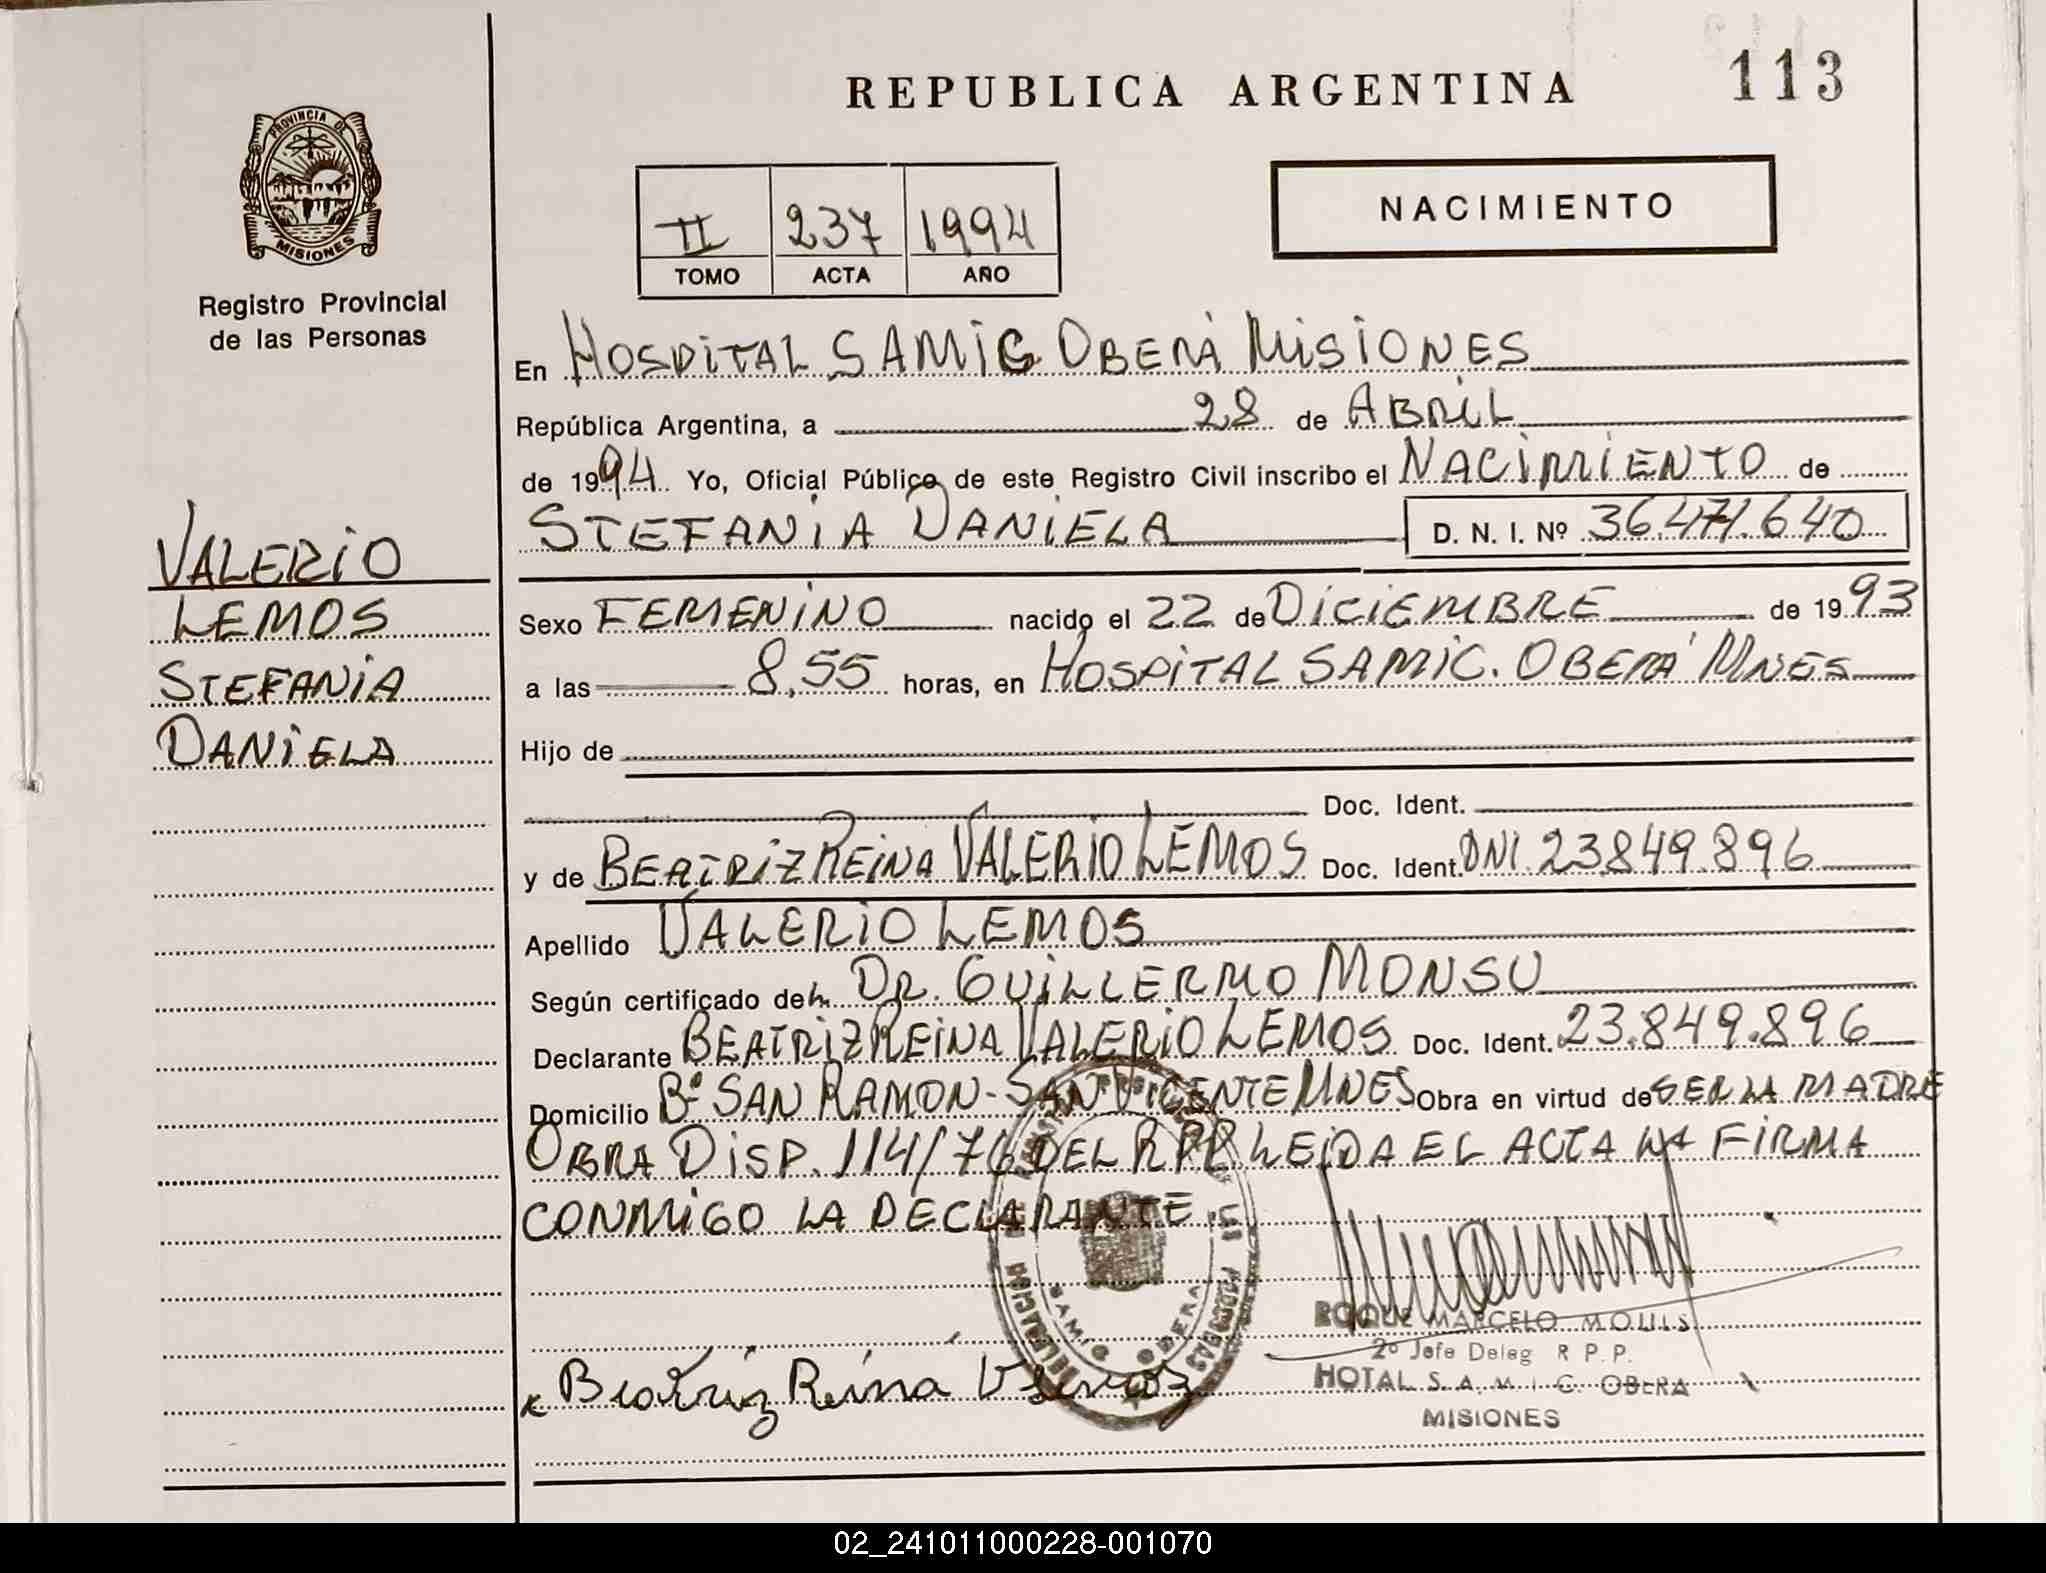 REPUBLICA ARGENTINA
113
PROVINCIA DE
MISIONES
Registro Provincial
de las Personas
II 237 1994
TOMO ACTA AÑO
NACIMIENTO
VALERIO
LEMOS
STEFANIA
DANIELA
En HOSPITAL SAMIC OBERÁ MISIONES
República Argentina, a 28 de ABRIL
de 1994 Yo, Oficial Público de este Registro Civil inscribo el NACIMIENTO de
STEFANIA DANIELA D. N. I. Nº 36.471.640
Sexo FEMENINO nacido el 22 de DICIEMBRE de 1993
a las 8,55 horas, en HOSPITAL SAMIC. OBERÁ MNES
Hijo de
Doc. Ident.
y de BEATRIZ REINA VALERIO LEMOS Doc. Ident. DNI. 23.849.896
Apellido VALERIO LEMOS
Según certificado del DR. GUILLERMO MONSU
Declarante BEATRIZ REINA VALERIO LEMOS Doc. Ident. 23.849.896
Domicilio Bº SAN RAMON - SAN VICENTE MNES Obra en virtud de SER LA MADRE
OBRA DISP. 114/76 DEL RPP LEIDA EL ACTA LA FIRMA
CONMIGO LA DECLARANTE
DELEGACION
SAMIC OBERA
ROQUE MARCELO
2º Jefe Deleg R P. P.
HOTAL S. A. M. I. C. OBERA
MISIONES
Beatriz Reina
02_241011000228-001070